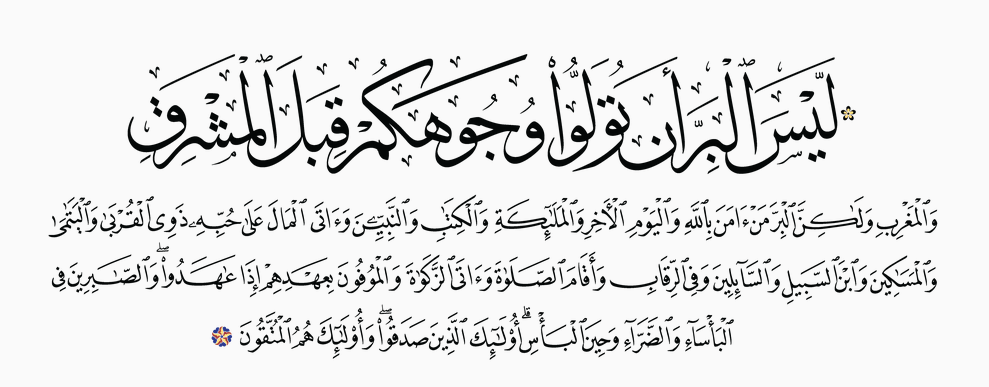 لَّيْسَ ٱلْبِرَّ أَن تُوَلُّوا۟ وُجُوهَكُمْ قِبَلَ ٱلْمَشْرِقِ
وَٱلْمَغْرِبِ وَلَٰكِنَّ ٱلْبِرَّ مَنْ ءَامَنَ بِٱللَّهِ وَٱلْيَوْمِ ٱلْـَٔاخِرِ وَٱلْمَلَٰٓئِكَةِ وَٱلْكِتَٰبِ وَٱلنَّبِيِّـۧنَ وَءَاتَى ٱلْمَالَ عَلَىٰ حُبِّهِۦ ذَوِى ٱلْقُرْبَىٰ وَٱلْيَتَٰمَىٰ
وَٱلْمَسَٰكِينَ وَٱبْنَ ٱلسَّبِيلِ وَٱلسَّآئِلِينَ وَفِى ٱلرِّقَابِ وَأَقَامَ ٱلصَّلَوٰةَ وَءَاتَى ٱلزَّكَوٰةَ وَٱلْمُوفُونَ بِعَهْدِهِمْ إِذَا عَٰهَدُوا۟ ۖ وَٱلصَّٰبِرِينَ فِى
ٱلْبَأْسَآءِ وَٱلضَّرَّآءِ وَحِينَ ٱلْبَأْسِ ۗ أُو۟لَٰٓئِكَ ٱلَّذِينَ صَدَقُوا۟ ۖ وَأُو۟لَٰٓئِكَ هُمُ ٱلْمُتَّقُونَ